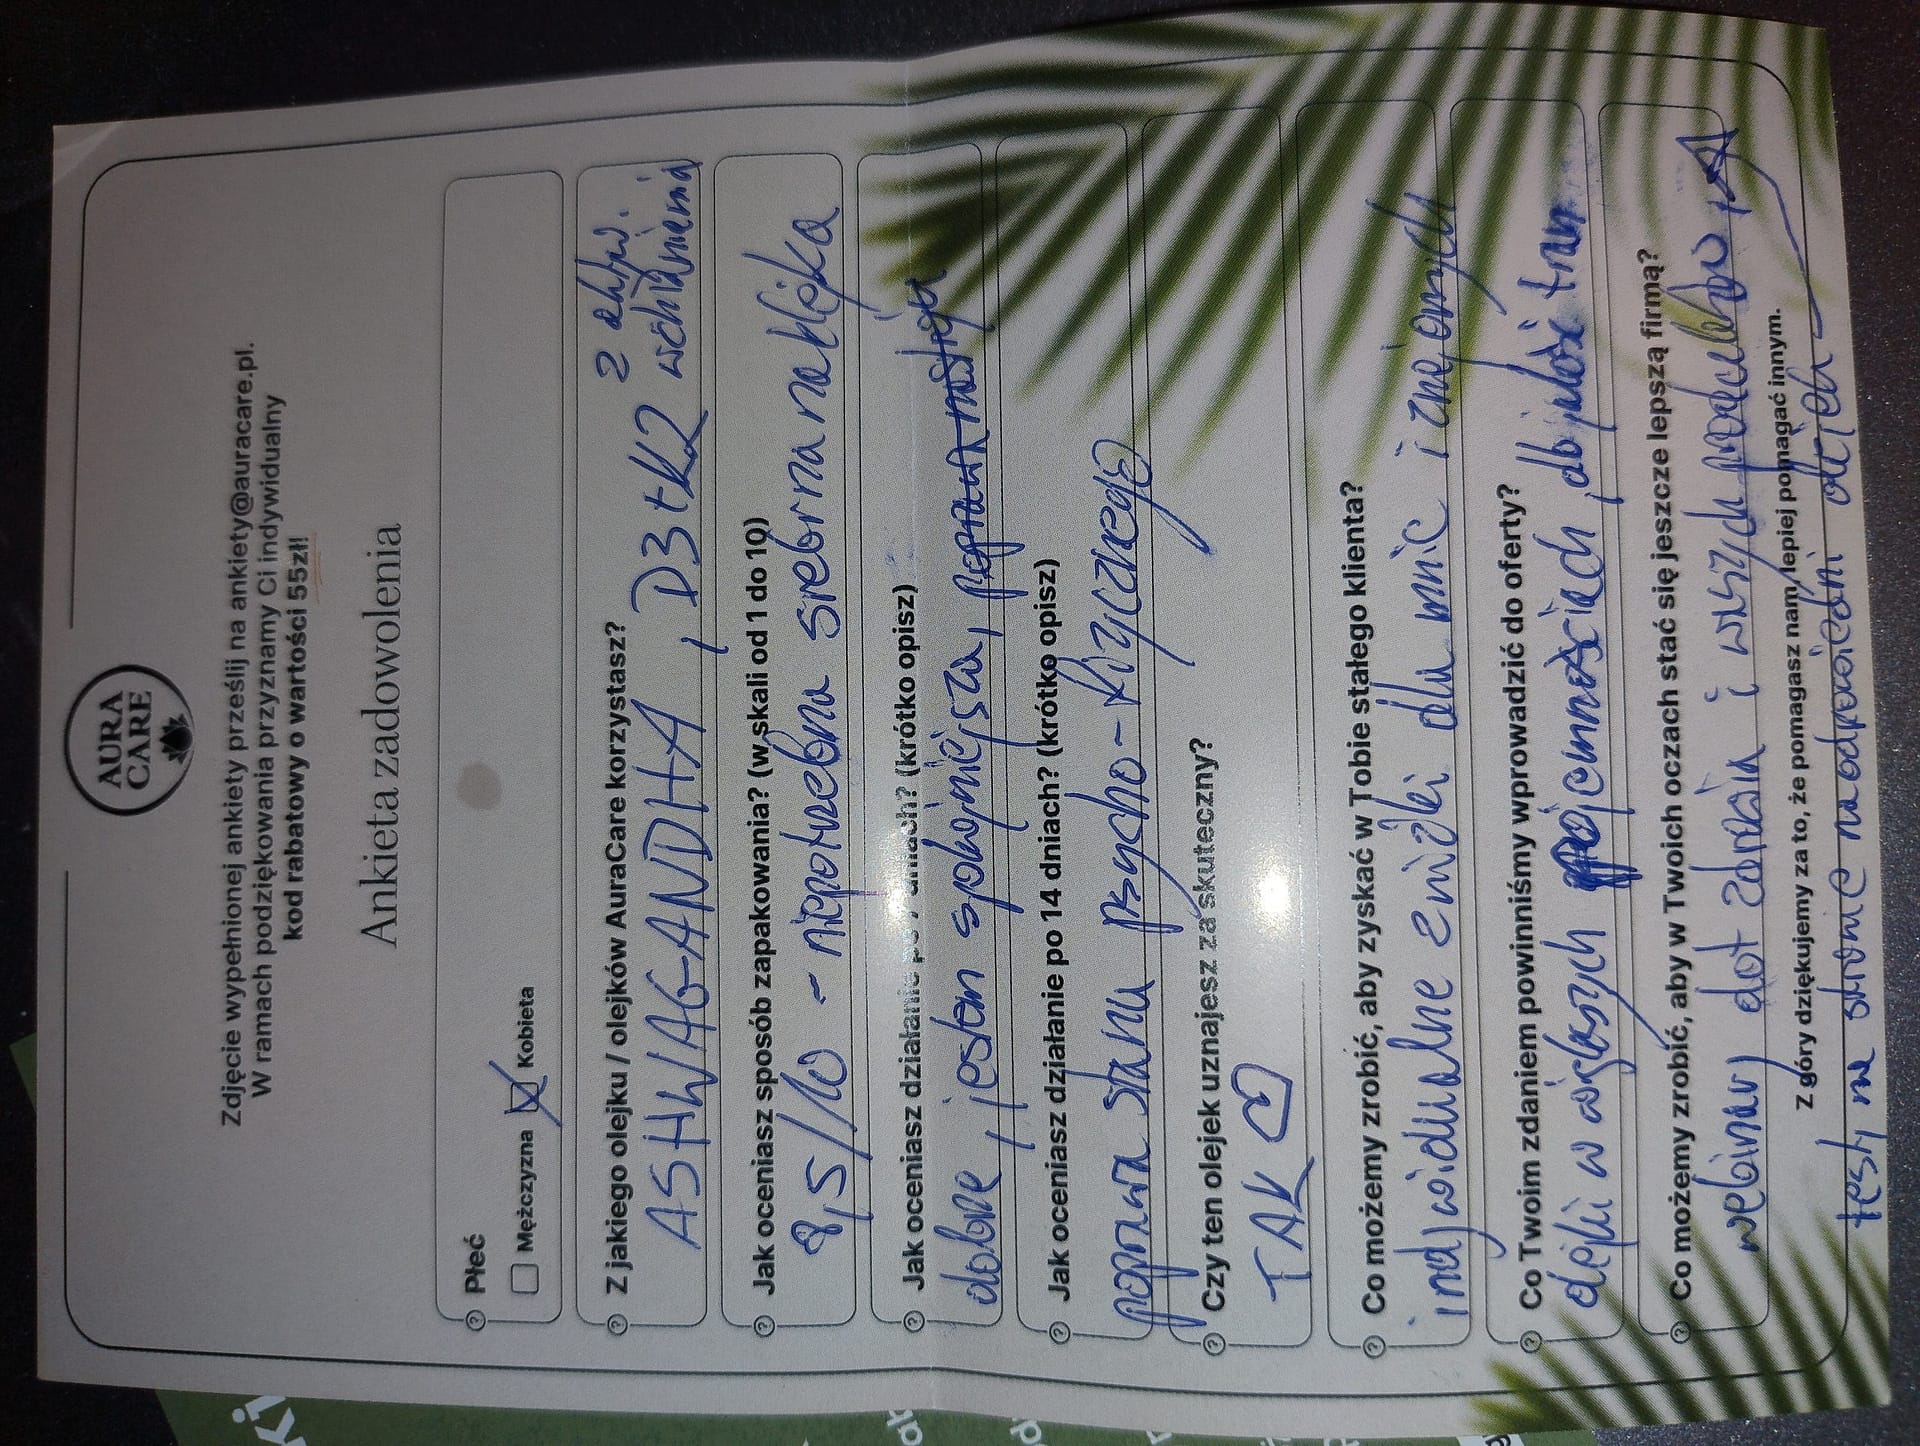 AURA
CARE
Zdjęcie wypełnionej ankiety prześlij na ankiety@auracare.pl.
W ramach podziękowania przyznamy Ci indywidualny
kod rabatowy o wartości 55zł!
Ankieta zadowolenia
Płeć
Mężczyzna Kobieta
Z jakiego olejku / olejków AuraCare korzystasz?
2 aktyw.
ASHWAGANDHA, D3+K2 wchłaniania
Jak oceniasz sposób zapakowania? (w skali od 1 do 10)
8,5/10 - niepotrzebna srebrna naklejka
Jak oceniasz działanie po 7 dniach? (krótko opisz)
dobrze, jestem spokojniejsza, poprawa nastroju
Jak oceniasz działanie po 14 dniach? (krótko opisz)
poprawa stanu psycho-fizycznego
Czy ten olejek uznajesz za skuteczny?
TAK
Co możemy zrobić, aby zyskać w Tobie stałego klienta?
indywidualne zniżki dla mnie i znajomych
Co Twoim zdaniem powinniśmy wprowadzić do oferty?
olejki w większych pojemnościach, dobrej jakości tran
Co możemy zrobić, aby w Twoich oczach stać się jeszcze lepszą firmą?
webinary dot zdrowia i waszych produktów,
Z góry dziękujemy za to, że pomagasz nam lepiej pomagać innym.
testy na stronie na odpowiedni olejek